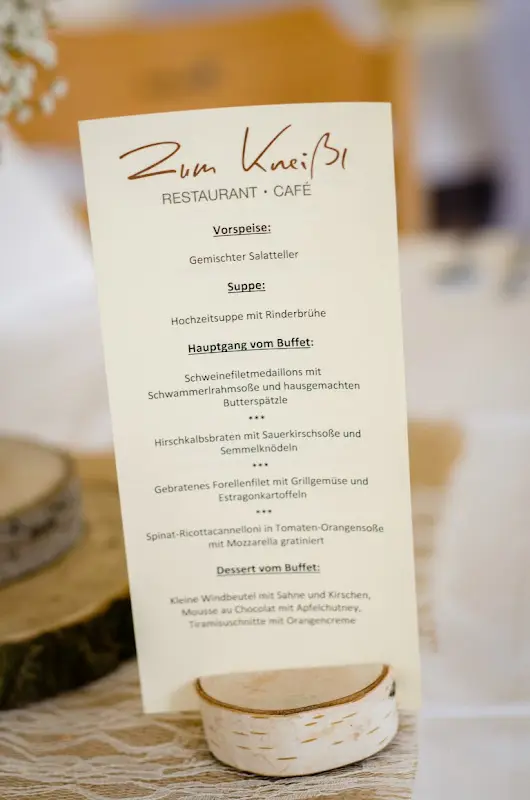 Zum Kneißl
RESTAURANT • CAFÉ
Vorspeise:
Gemischter Salatteller
Suppe:
Hochzeitsuppe mit Rinderbrühe
Hauptgang vom Buffet:
Schweinefiletmedaillons mit
Schwammerlrahmsoße und hausgemachten
Butterspätzle
***
Hirschkalbsbraten mit Sauerkirschsoße und
Semmelknödeln
***
Gebratenes Forellenfilet mit Grillgemüse und
Estragonkartoffeln
***
Spinat-Ricottacannelloni in Tomaten-Orangensoße
mit Mozzarella gratiniert
Dessert vom Buffet:
Kleine Windbeutel mit Sahne und Kirschen,
Mousse au Chocolat mit Apfelchutney,
Tiramisuschnitte mit Orangencreme